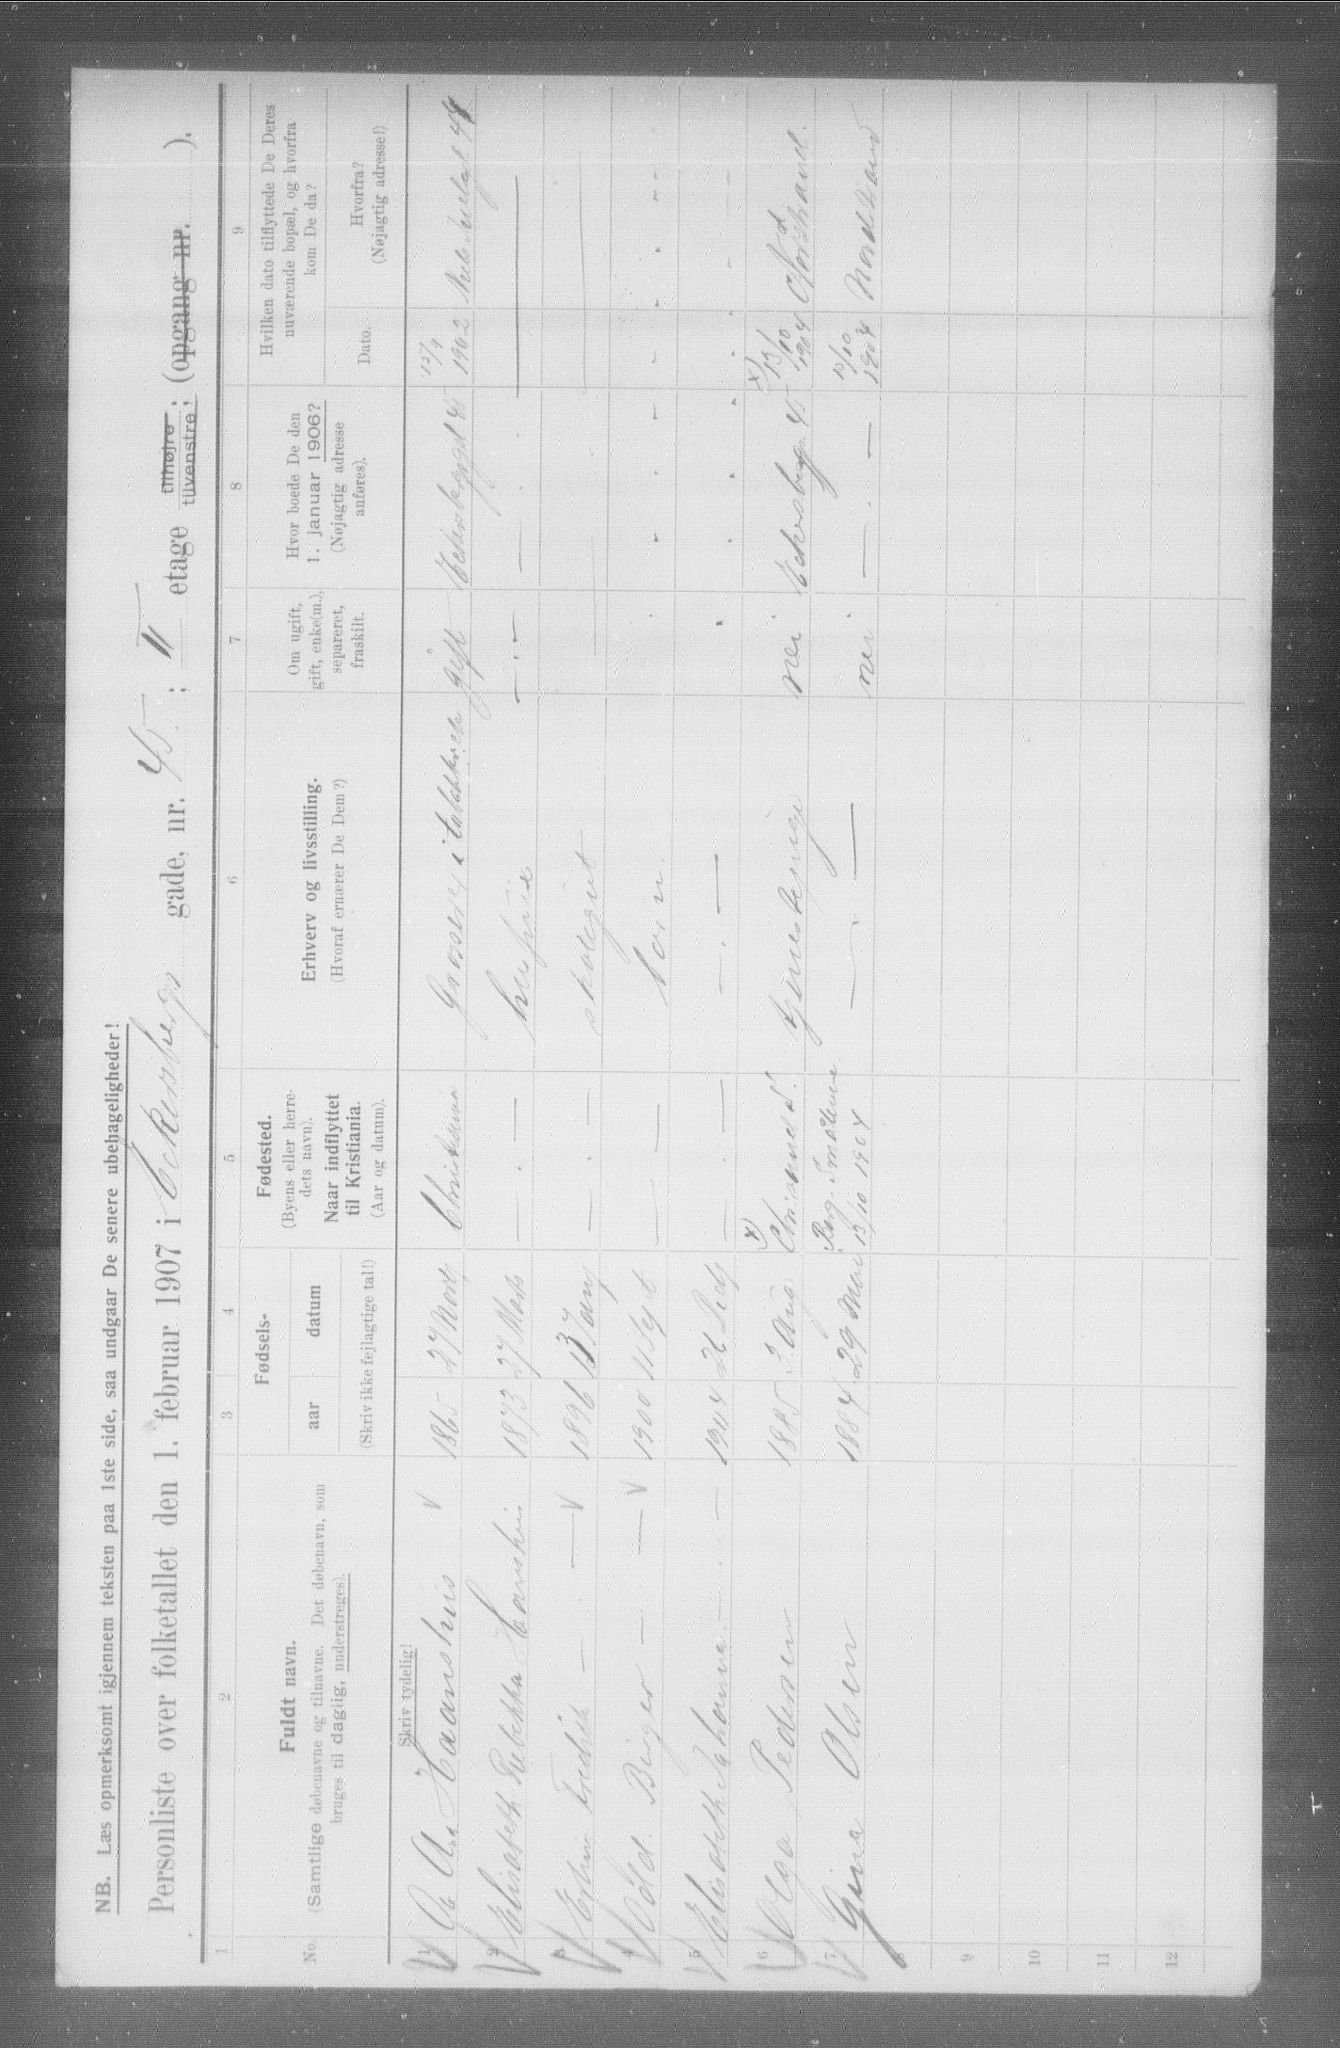 NB. Læs opmerksomt igjennem teksten paa 1ste side, saa undgaar De senere ubehageligheder!
Personliste over folketallet den 1. februar 1907 i Eckersbergs gade, nr. 45 ; II etage tilhøjre ; tilvenstre ; (opgang nr. ).
1 2 3 4 5 6 7 8 9
No.
Fuldt navn.
(Samtlige døbenavne og tilnavne. Det døbenavn, som
bruges til daglig, understreges).
Fødsels-
aar datum
(Skriv ikke fejlagtige tal!)
Fødested.
(Byens eller herre-
dets navn).
Naar indflyttet
til Kristiania.
(Aar og datum).
Erhverv og livsstilling.
(Hvoraf ernærer De Dem?)
Om ugift,
gift, enke(m.),
separeret,
fraskilt.
Hvor boede De den
1. januar 1906?
(Nøjagtig adresse
anføres).
Hvilken dato tilflyttede De Deres
nuværende bopæl, og hvorfra
kom De da?
Dato.
Hvorfra?
(Nøjagtig adresse!)
Skriv tydelig!
1 Haanshus 1865 27 Christiania Grosserer i gift Eckersbergsgd 45 15/9 1902
2 Elisabeth Rebekka Haanshus 1873 27 Mars — husfrue — —
3 Fredrik — 1896 13 Jany — skolegut
4 Odd. Birger — 1900 11 Sept — barn.
5 Elisabeth Johanna — 1904 26 — —
6 Olga Pedersen 1885 3 Aug. tjenestepige nei Eckersbergs 45 15/10 1904
7 Gina Olsen 1884 29 Mai Berg Smålenene 15/10 1904 — nei — 15/10 1904
8
9
10
11
12